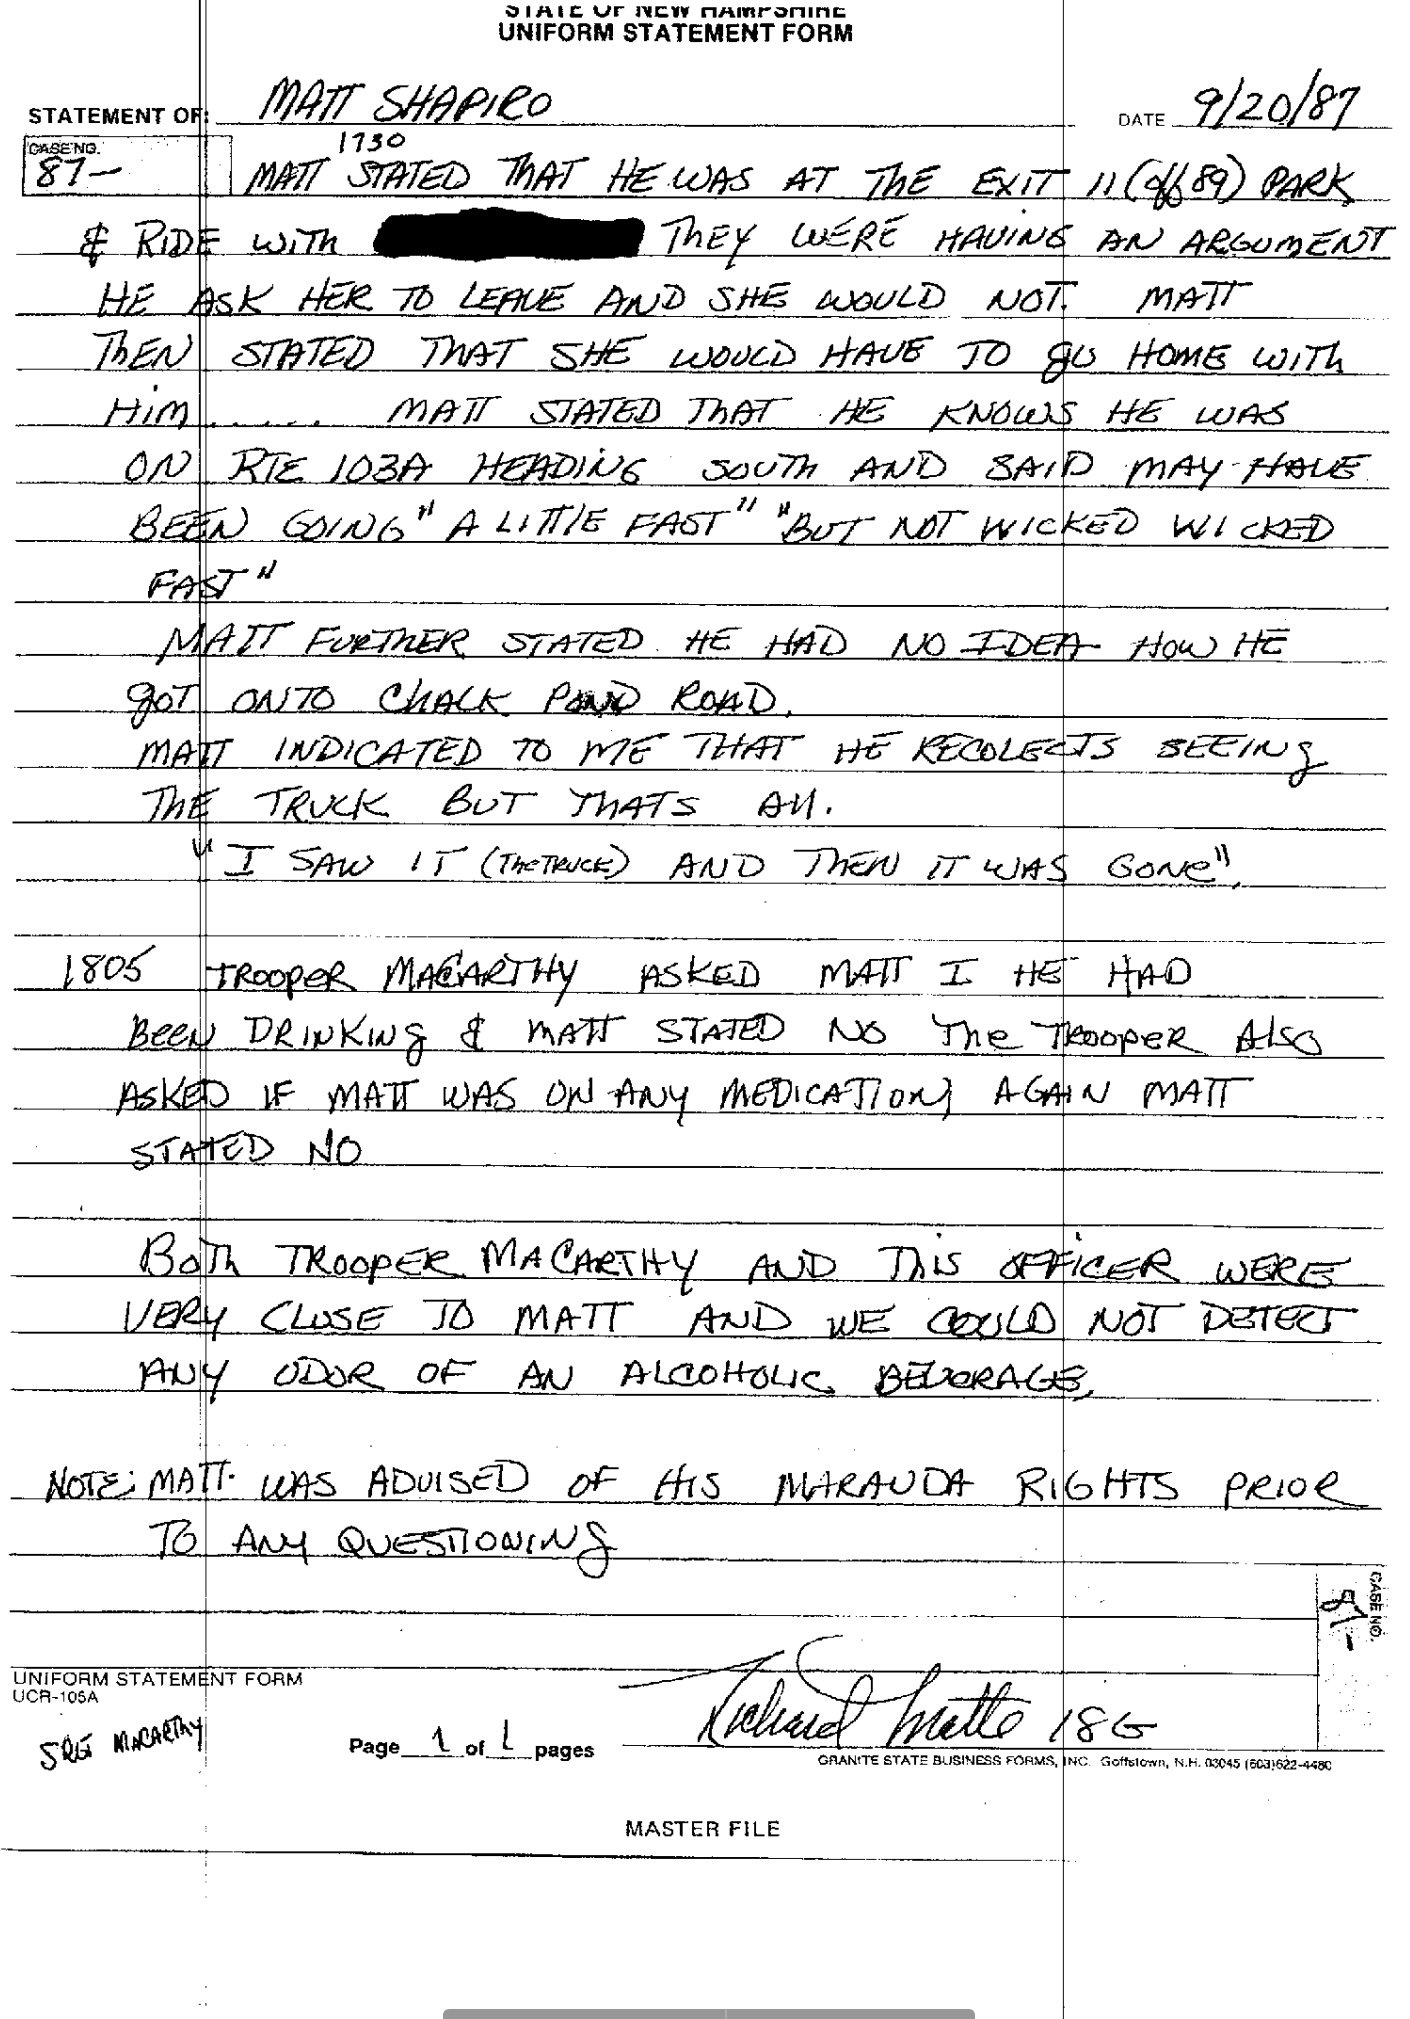 STATE OF NEW HAMPSHIRE
UNIFORM STATEMENT FORM
STATEMENT OF: MATT SHAPIRO DATE 9/20/87
CASE NO. 1730
87- MATT STATED THAT HE WAS AT THE EXIT 11 (off 89) PARK
& RIDE WITH THEY WERE HAVING AN ARGUMENT
HE ASK HER TO LEAVE AND SHE WOULD NOT. MATT
THEN STATED THAT SHE WOULD HAVE TO go HOME WITH
HiM ...... MATT STATED THAT HE KNOWS HE WAS
ON RTE 103A HEADING SOUTH AND SAID MAY HAVE
BEEN GOING "A LITTLE FAST" "BUT NOT WICKED WICKED
FAST"
MATT FURTHER STATED HE HAD NO IDEA HOW HE
gOT ONTO CHALK POND ROAD.
MATT INDICATED TO ME THAT HE RECOLECTS SEEING
THE TRUCK BUT THATS All.
"I SAW IT (THE TRUCK) AND THEN IT WAS GONe".
1805 TROOPER MACARTHY ASKED MATT I HE HAD
BEEN DRINKING & MATT STATED NO The TROOPER AlSO
ASKED IF MATT WAS ON ANY MEDICATION, AGAIN MATT
STATED NO
BOTH TROOPER MACARTHY AND THiS OFFiCER WERE
VERY CLOSE TO MATT AND WE COULD NOT DETECT
ANY ODOR OF AN ALCOHOLIC BEVERAGE.
NOTE: MATT WAS ADVISED OF HIS MARAUDA RIGHTS PRIOR
TO ANY QUESTIONING
CASE NO.
87-
UNIFORM STATEMENT FORM
UCR-105A
SRG McCARTHY
Page 1 of 1 pages
Richard Matte 18G
GRANITE STATE BUSINESS FORMS, INC. Goffstown, N.H. 03045 (603)622-4480
MASTER FILE